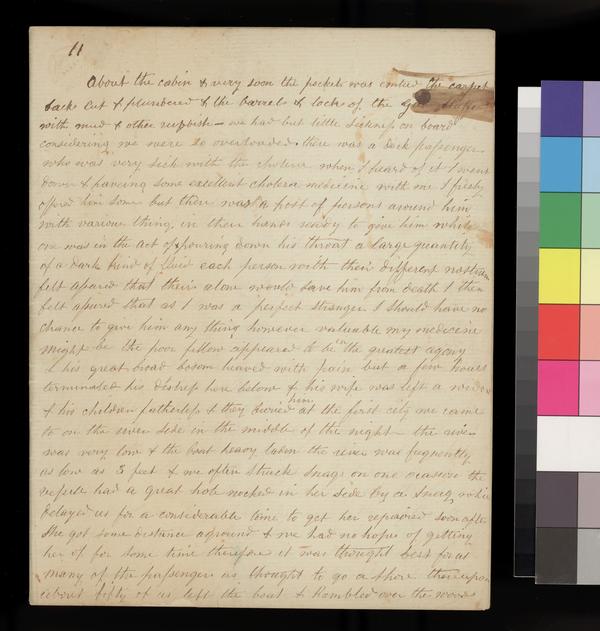 11
About the cabin & very soon the pockets was emtied the carpet
sacks cut & plundered & the barrels & locks of the
with mud & other rubbish – we had but little sickness on board
considering we were so overloaded. there was a Deck passenger
who was very sick with the cholera when I heard of it I went
down & haveing some excellent cholera medicine with me I freely
offered him some but there was a post of persons around him
with various things in their hands ready to give him while
one was in the act of pouring down his throat a large quantity
of a dark kind of fluid each person with their different nostrum
felt asured that their alone would save him from death I then
felt asured that as I was a perfect stranger I should have no
chance to give him any thing however valuable my medecine
might be the poor fellow appeared to be in the greatest agony
& his great broad bosom heaved with pain but a few hours
terminated his distress here below & his wife was left a widow
& his children fatherless & they buried him at the first city we came
to on the river side in the middle of the night – the river
was very low & the boat heavy laden the river was frequently
as low as 3 feet & we often struck snags on one ocasion the
vessel had a great hole nocked in her side by a snag which
delayed us for a considerable time to get her repaired soon after
she got some distance aground & we had no hopes of getting
her of for some time therefore it was thought best for as
many of the passengers as thought to go a shore thereupon
about fifty of us left the boat & rambled over the woods